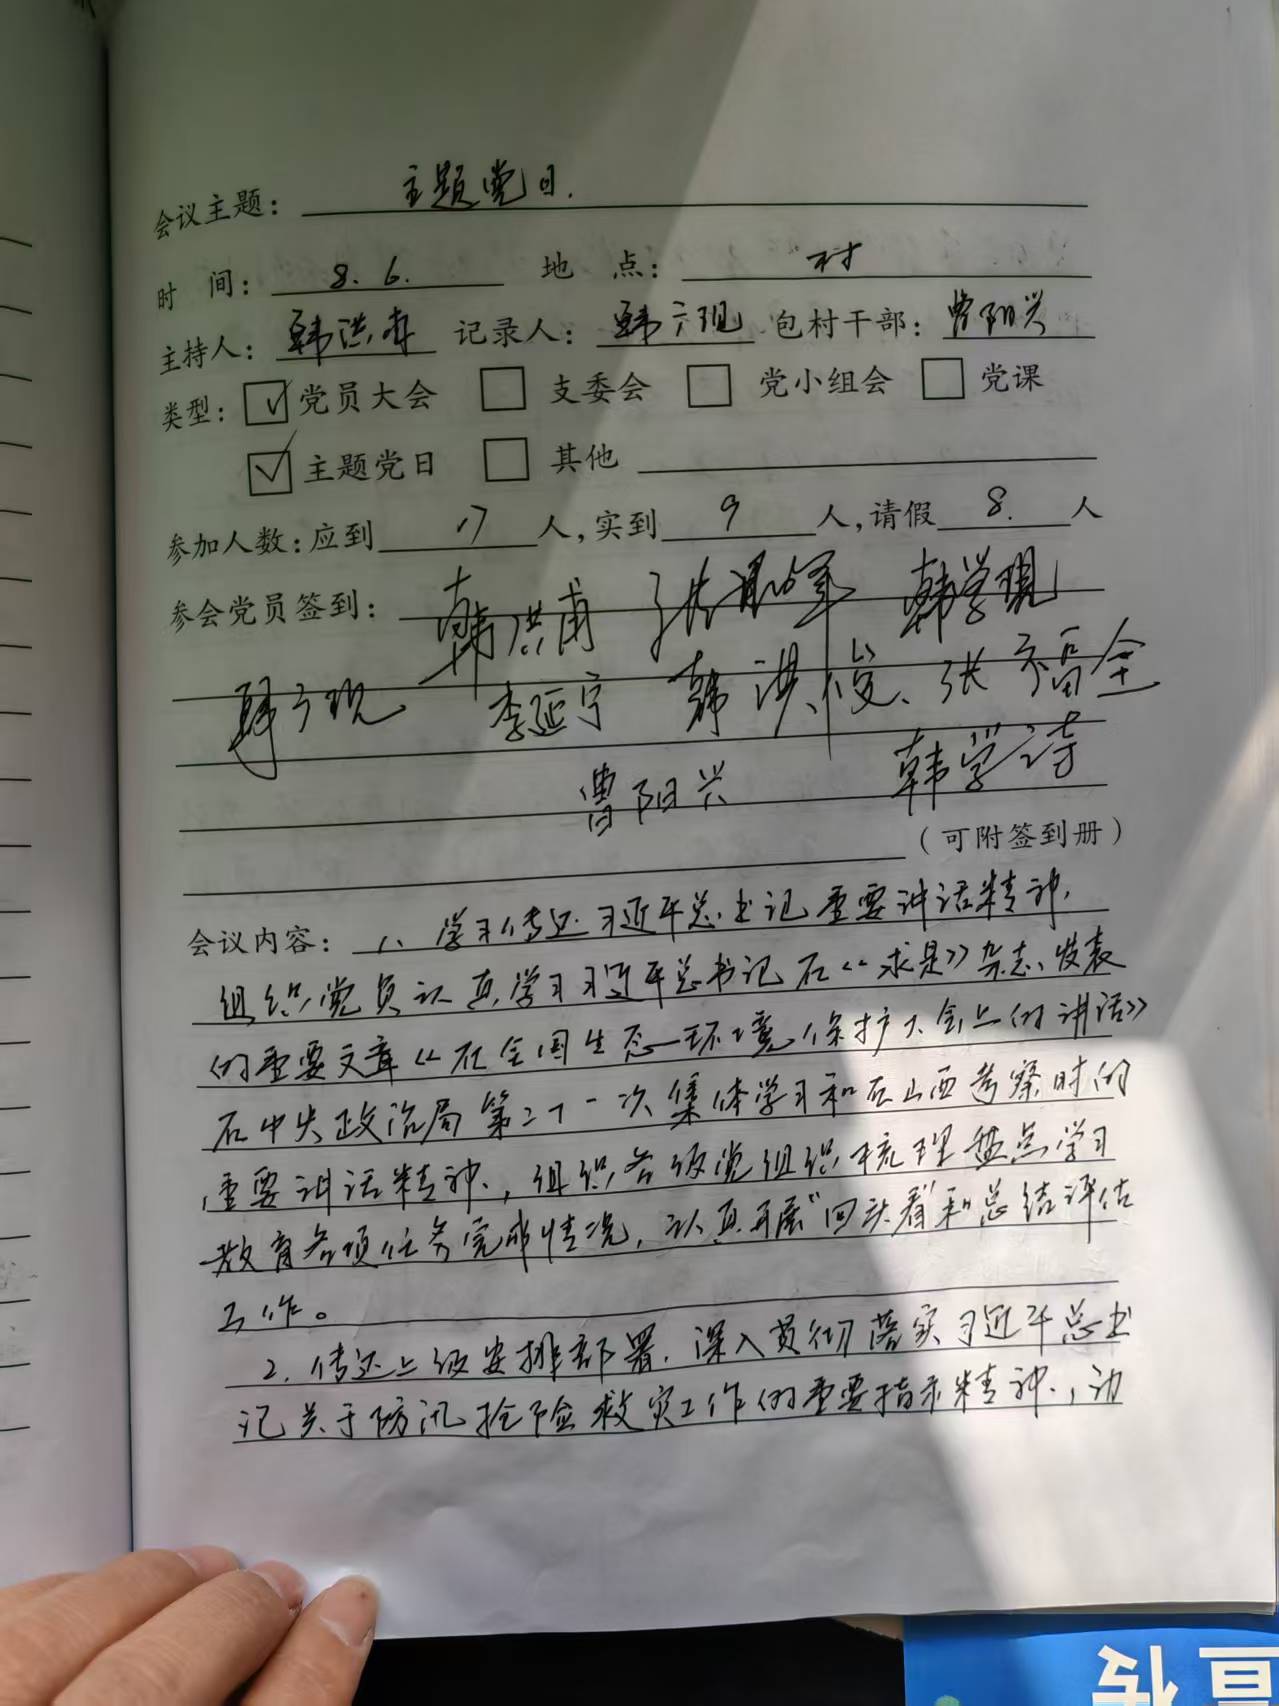 会议主题： 主题党日.
时 间： 8.6. 地 点： 村
主持人： 韩洪甫 记录人： 韩广现 包村干部： 曹阳兴
类型： ☑ 党员大会 □ 支委会 □ 党小组会 □ 党课
☑ 主题党日 □ 其他
参加人数：应到 17 人，实到 9 人，请假 8. 人
参会党员签到： 韩洪甫 韩学现
韩广现 李延宁 韩洪俊、张福全
曹阳兴 韩学诗
（可附签到册）
会议内容： 1、学习传达习近平总书记重要讲话精神，
组织党员认真学习习近平总书记在《求是》杂志发表
的重要文章《在全国生态环境保护大会上的讲话》
在中央政治局第二十一次集体学习和在山西考察时的
重要讲话精神，组织各级党组织梳理盘点学习
教育各项任务完成情况，认真开展“回头看”和总结评估
工作。
2. 传达上级安排部署，深入贯彻落实习近平总书
记关于防汛抢险救灾工作的重要指示精神，动
宣传